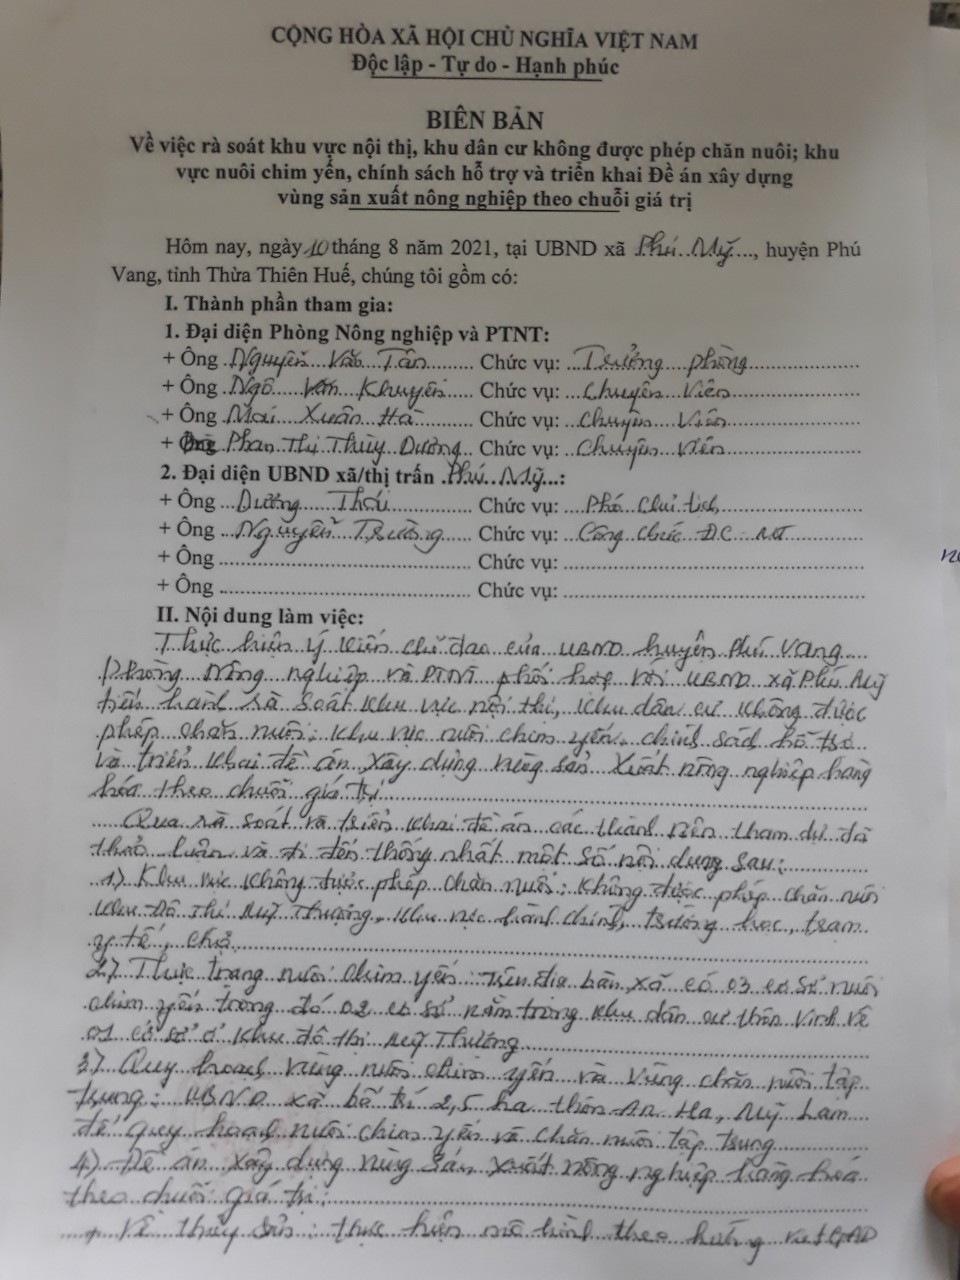 CỘNG HÒA XÃ HỘI CHỦ NGHĨA VIỆT NAM
Độc lập - Tự do - Hạnh phúc
BIÊN BẢN
Về việc rà soát khu vực nội thị, khu dân cư không được phép chăn nuôi; khu
vực nuôi chim yến, chính sách hỗ trợ và triển khai Đề án xây dựng
vùng sản xuất nông nghiệp theo chuỗi giá trị
Hôm nay, ngày 10 tháng 8 năm 2021, tại UBND xã Phú Mỹ, huyện Phú
Vang, tỉnh Thừa Thiên Huế, chúng tôi gồm có:
I. Thành phần tham gia:
1. Đại diện Phòng Nông nghiệp và PTNT:
+ Ông Nguyễn Văn Tân Chức vụ: Trưởng phòng
+ Ông Ngô Văn Khuyên Chức vụ: Chuyên viên
+ Ông Mai Xuân Hà Chức vụ: Chuyên viên
+ Phan Thị Thùy Dương Chức vụ: Chuyên viên
2. Đại diện UBND xã/thị trấn Phú Mỹ:
+ Ông Dương Thái Chức vụ: Phó Chủ tịch
+ Ông Nguyễn Trường Chức vụ: Công chức ĐC
+ Ông Chức vụ:
+ Ông Chức vụ:
II. Nội dung làm việc:
Thực hiện ý kiến chỉ đạo của UBND huyện Phú Vang
Phòng Nông nghiệp và PTNT phối hợp với UBND xã Phú Mỹ
tiến hành rà soát khu vực nội thị, khu dân cư không được
phép chăn nuôi; khu vực nuôi chim yến, chính sách hỗ trợ
và triển khai đề án xây dựng vùng sản xuất nông nghiệp hàng
hóa theo chuỗi giá trị
Qua rà soát và triển khai đề án các thành viên tham dự đã
thảo luận và đi đến thống nhất một số nội dung sau:
1) Khu vực không được phép chăn nuôi: Không được phép chăn nuôi
khu Đô thị Mỹ Thượng, khu vực hành chính, trường học, trạm
y tế, chợ
2) Thực trạng nuôi chim yến: trên địa bàn xã có 03 cơ sở nuôi
chim yến trong đó 02 cơ sở nằm trong khu dân cư thôn Vinh Vệ
01 cơ sở ở khu đô thị Mỹ Thượng
3) Quy hoạch vùng nuôi chim yến và vùng chăn nuôi tập
trung: UBND xã bố trí 2,5 ha thôn An Hạ, Mỹ Lam
để quy hoạch nuôi chim yến và chăn nuôi tập trung
4) Đề án xây dựng vùng sản xuất nông nghiệp hàng hóa
theo chuỗi giá trị:
+ Về thủy sản: thực hiện mô hình theo hướng VietGAP